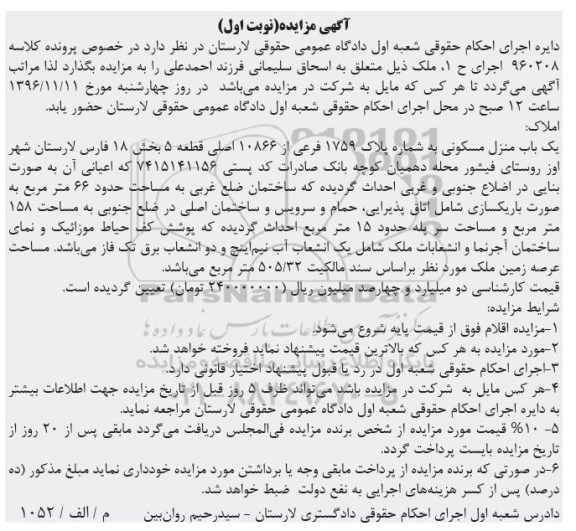 آگهی مزایده(نوبت اول)
دایره اجرای احکام حقوقی شعبه اول دادگاه عمومی حقوقی لارستان در نظر دارد در خصوص پرونده کلاسه
۹۶۰۲۰۸ اجرای ح ۱، ملک ذیل متعلق به اسحاق سلیمانی فرزند احمدعلی را به مزایده بگذارد لذا مراتب
آگهی می‌گردد تا هر کس که مایل به شرکت در مزایده می‌باشد در روز چهارشنبه مورخ ۱۳۹۶/۱۱/۱۱
ساعت ۱۲ صبح در محل اجرای احکام حقوقی شعبه اول دادگاه عمومی حقوقی لارستان حضور یابد.
املاک:
یک باب منزل مسکونی به شماره پلاک ۱۷۵۹ فرعی از ۱۰۸۶۶ اصلی قطعه ۵ بخش ۱۸ فارس لارستان شهر
اوز روستای فیشور محله دهمیان کوچه بانک صادرات کد پستی ۷۴۱۵۱۴۱۱۵۶ که اعیانی آن به صورت
بنایی در اضلاع جنوبی و غربی احداث گردیده که ساختمان ضلع غربی به مساحت حدود ۶۶ متر مربع به
صورت باریکسازی شامل اتاق پذیرایی، حمام و سرویس و ساختمان اصلی در ضلع جنوبی به مساحت ۱۵۸
متر مربع و مساحت سر پله حدود ۱۵ متر مربع احداث گردیده که پوشش کف حیاط موزائیک و نمای
ساختمان آجرنما و انشعابات ملک شامل یک انشعاب آب نیم‌اینچ و دو انشعاب برق تک فاز می‌باشد. مساحت
عرصه زمین ملک مورد نظر براساس سند مالکیت ۵۰۵/۳۲ متر مربع می‌باشد.
قیمت کارشناسی دو میلیارد و چهارصد میلیون ریال (۲۴۰۰۰۰۰۰۰ تومان) تعیین گردیده است.
شرایط مزایده:
۱-مزایده اقلام فوق از قیمت پایه شروع می‌شود.
۲-مورد مزایده به هر کس که بالاترین قیمت پیشنهاد نماید فروخته خواهد شد.
۳-اجرای احکام حقوقی شعبه اول در رد یا قبول پیشنهاد اختیار قانونی دارد.
۴-هر کس مایل به شرکت در مزایده باشد می‌تواند ظرف ۵ روز قبل از تاریخ مزایده جهت اطلاعات بیشتر
به دایره اجرای احکام حقوقی شعبه اول دادگاه عمومی حقوقی لارستان مراجعه نماید.
۵- ۱۰% قیمت مورد مزایده از شخص برنده مزایده فی‌المجلس دریافت می‌گردد مابقی پس از ۲۰ روز از
تاریخ مزایده بایست پرداخت گردد.
۶-در صورتی که برنده مزایده از پرداخت مابقی وجه یا برداشتن مورد مزایده خودداری نماید مبلغ مذکور (ده
درصد) پس از کسر هزینه‌های اجرایی به نفع دولت ضبط خواهد شد.
دادرس شعبه اول اجرای احکام حقوقی دادگستری لارستان - سیدرحیم روان‌بین م / الف / ۱۰۵۲